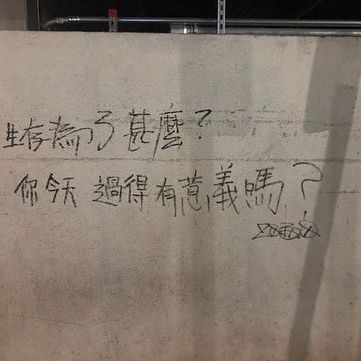 生存為了甚麼？
你今天過得有意義嗎？